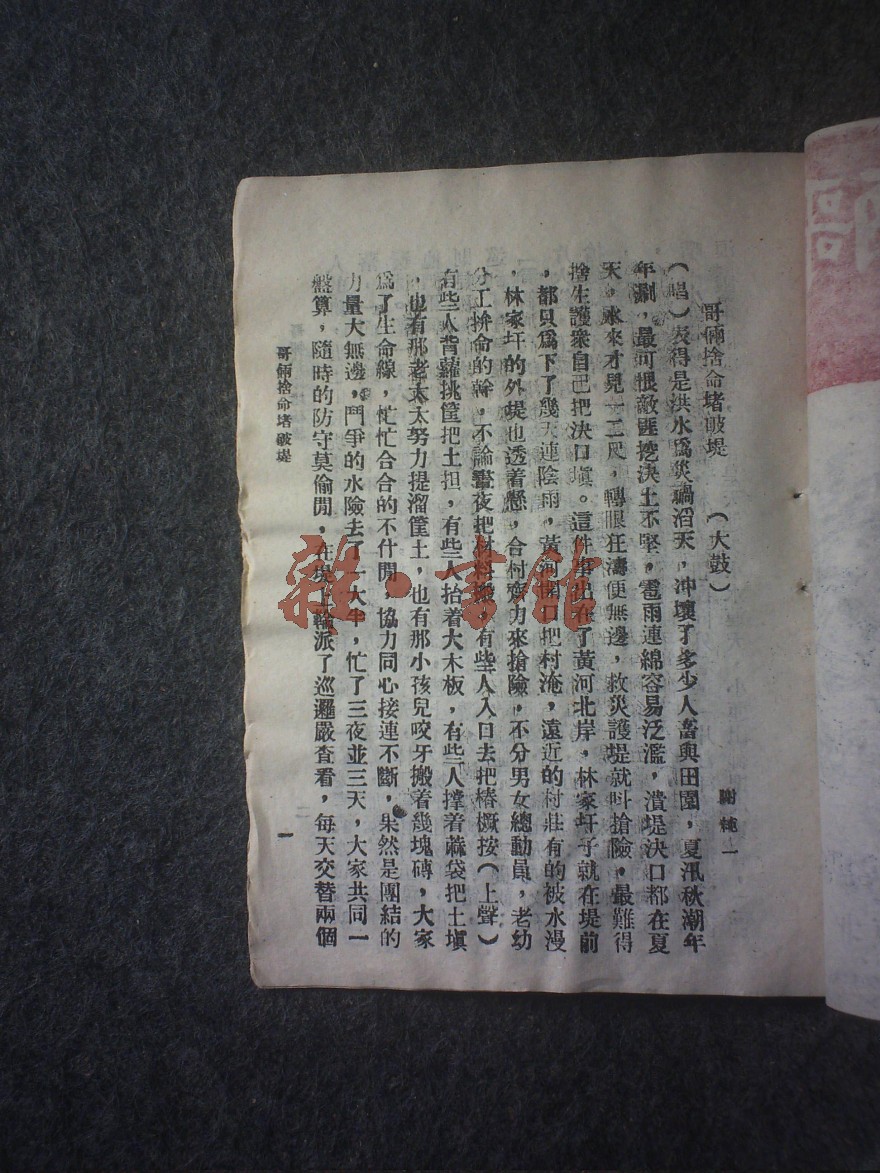 哥倆捨命堵破堤　（大鼓）
謝　一
（唱）表得是洪水爲災禍滔天，冲壞了多少人畜與田園，夏汛秋潮年
年涮，最可恨敵匪挖決土不堅，雹雨連綿容易泛濫，潰堤決口都在夏
天，水來才見一二尺，轉眼狂濤便無邊，救災護堤就叫搶險，最難得
捨生護衆自己把決口塡。這件事出在了黃河北岸，林家圩子就在堤前
，都只爲下了幾天連陰雨，黃河開口把村淹，遠近的村莊有的被水漫
，林家圩的外堤也透着懸，合村齊力來搶險，不分男女總動員，老幼
分工拚命的幹，不論晝夜把材料搬，有些人入口去把樁橛按（上聲）
有些人背蘿挑筐把土担，有些人抬着大木板，有些人撑着蔴袋把土塡
，也有那老太太努力提溜筐土，也有那小孩兒咬牙搬着幾塊磚，大家
爲了生命線，忙忙合合的不什閒，協力同心接連不斷，果然是團結的
力量大無邊，鬥爭的水險去了一大半，忙了三夜並三天，大家共同一
盤算，隨時的防守莫偷閒，在堤上輪派了巡邏嚴查看，每天交替兩個
哥倆捨命堵破堤
一
雜·書館